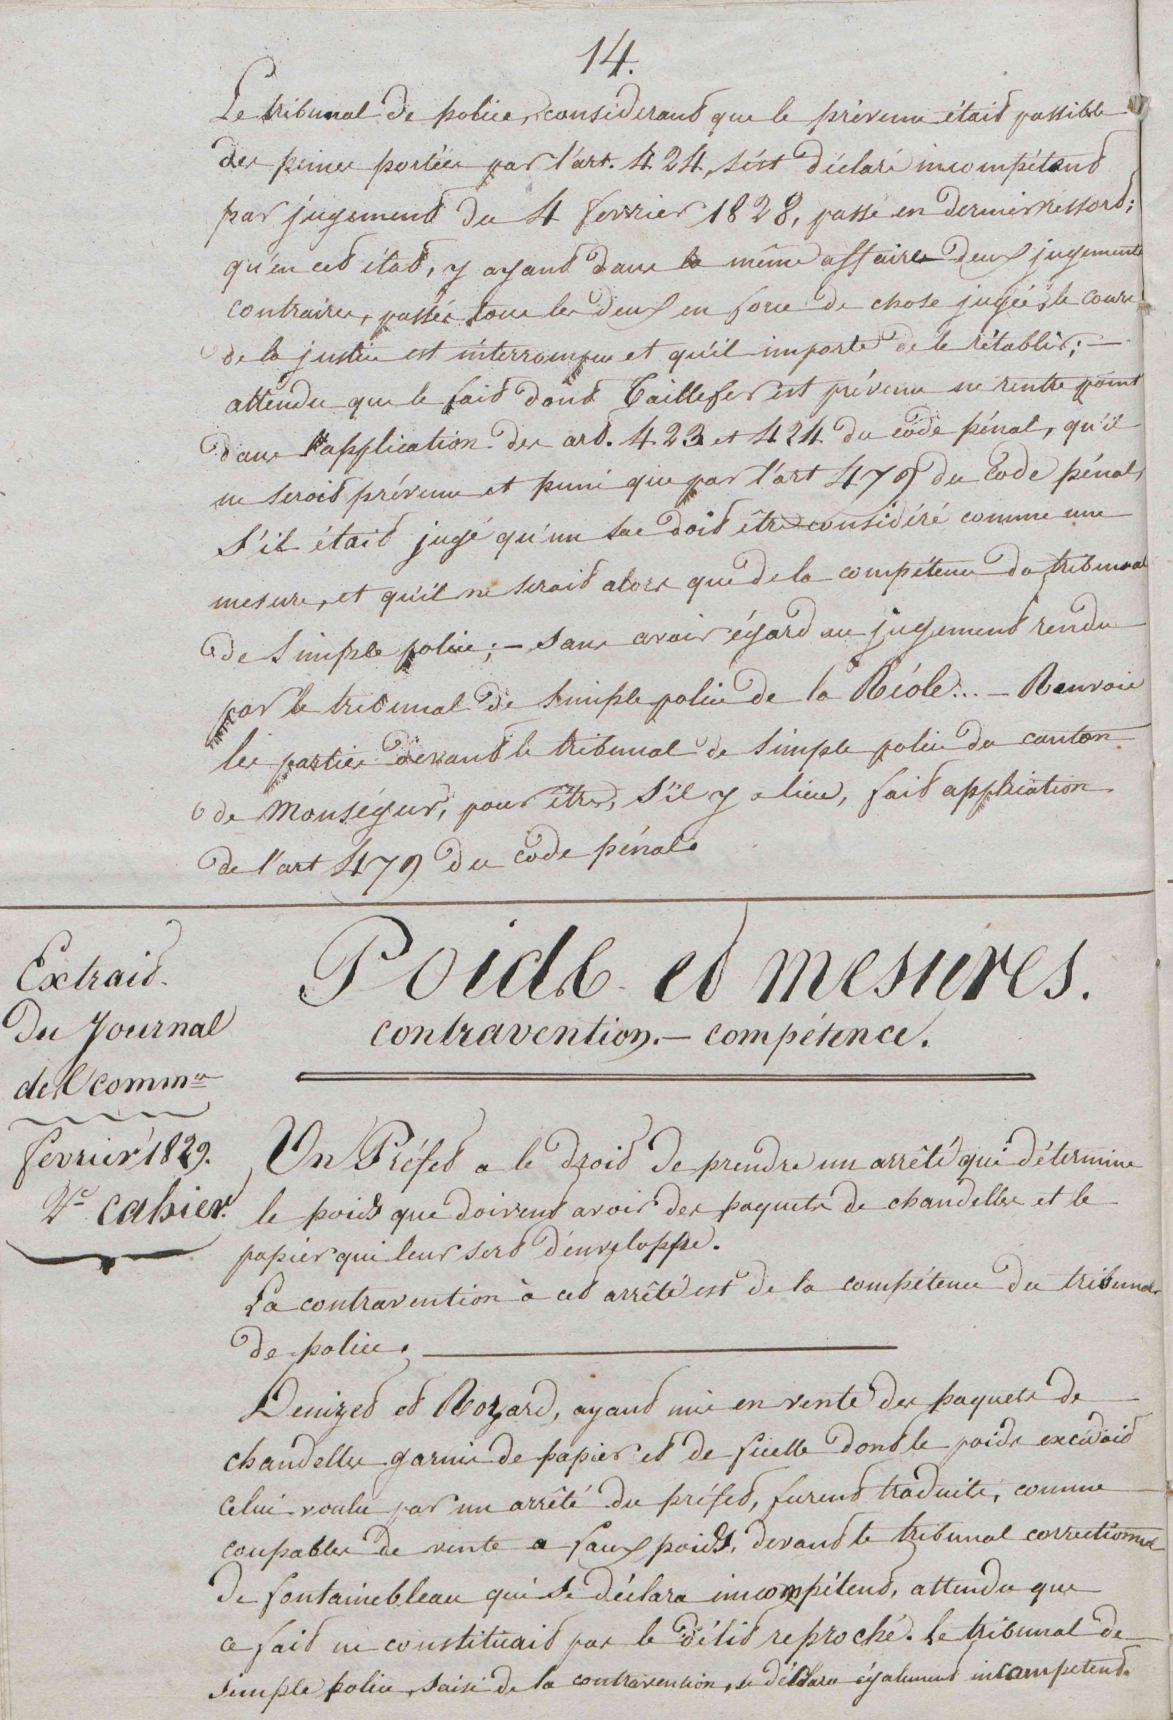 14.
Le tribunal de police, considerant que le prévenu était passible
des peines portées par l'art. 424, s'est déclaré incompétent
par jugement du 4 fevrier 1828, passé en dernier ressort;
qu'en cet état, y ayant dans la même affaire deux jugements
contraires, passés tous les deux en force de chose jugée, le cours
de la justice est interrompu et qu'il importe de le rétablir; —
attendu que le fait dont Taillefer est prévenu ne rentre point
dans l'application des art. 423 et 424 du code pénal, qu'il
ne serait prévenu et puni que par l'art 479 du Code pénal,
s'il était jugé qu'un sac doit être considéré comme une
mesure, et qu'il ne serait alors que de la compétence du tribunal
de simple police; — sans avoir égard au jugement rendu
par le tribunal de simple police de la Réole... — Renvoie
les parties devant le tribunal de simple police du canton
de Monségur, pour être, s'il y a lieu, fait application
de l'art 479 du code pénal.
Extrait
Du Journal
de comm.ce
fevrier 1829.
2e cahier.
Poids et mesures.
contravention. — compétence.
Un Préfet a le droit de prendre un arrêté qui détermine
le poids que doivent avoir des paquets de chandelles et le
papier qui leur sert d'enveloppe.
La contravention à cet arrêté est de la compétence du tribunal
de police.
Denizet et Rozard, ayant mis en vente des paquets de
chandelles garnis de papier et de ficelle dont le poids excédait
celui voulu par un arrêté du préfet, furent traduits, comme
coupables de vente a faux poids, devant le tribunal correctionnel
de fontainebleau qui se déclara incompétent, attendu que
ce fait ne constituait pas le délit reproché. Le tribunal de
simple police, saisi de la contravention, se déclara également incompetent.